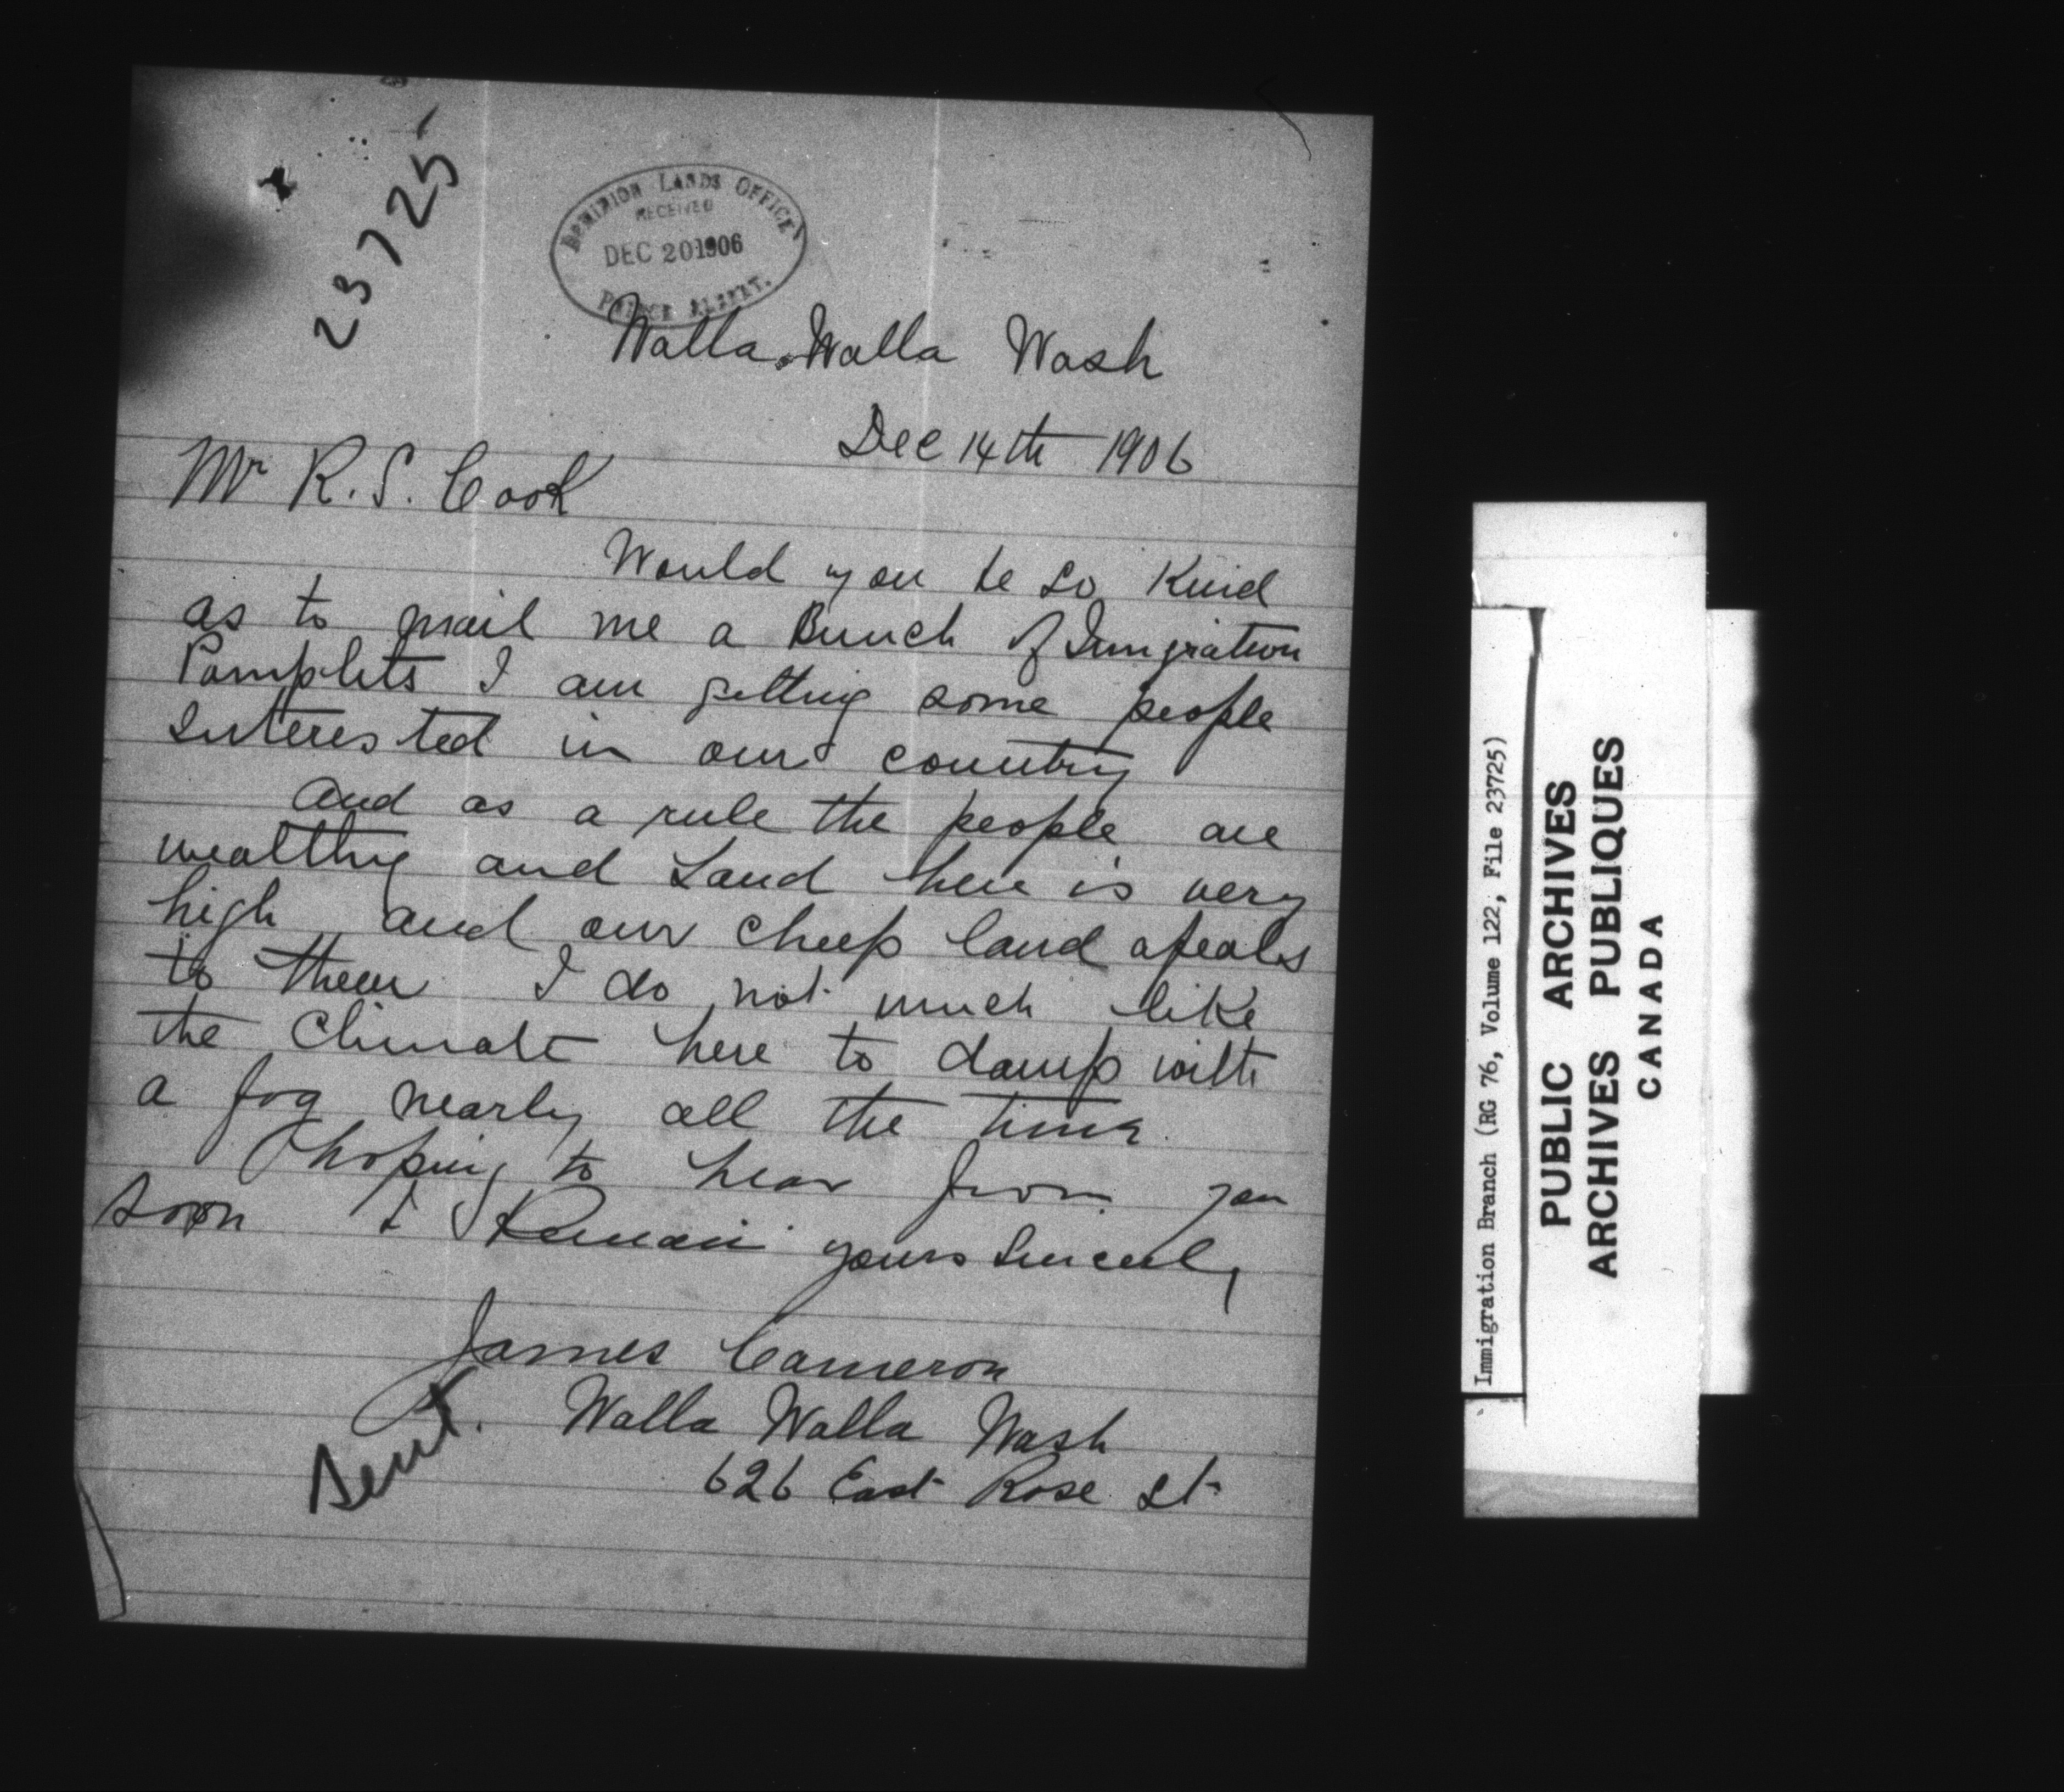 23725
DOMINION LANDS OFFICE
RECEIVED
DEC 20 1906
PRINCE ALBERT.
Walla Walla Wash
Dec 14th 1906
Mr R. S. Cook
Would you be so Kind
as to mail me a Bunch of Imigration
Pamplets I am getting some people
Interested in our country
and as a rule the people are
wealthy and Land here is very
high and our cheep land apeals
to them I do not much like
the Climate here to damp with
a fog nearly all the time.
hoping to hear from you
soon I Remain yours Sincerly
James Cameron
Walla Walla Wash
626 East Rose St
Sent.
Immigration Branch (RG 76, Volume 122, File 23725)
PUBLIC ARCHIVES
ARCHIVES PUBLIQUES
CANADA